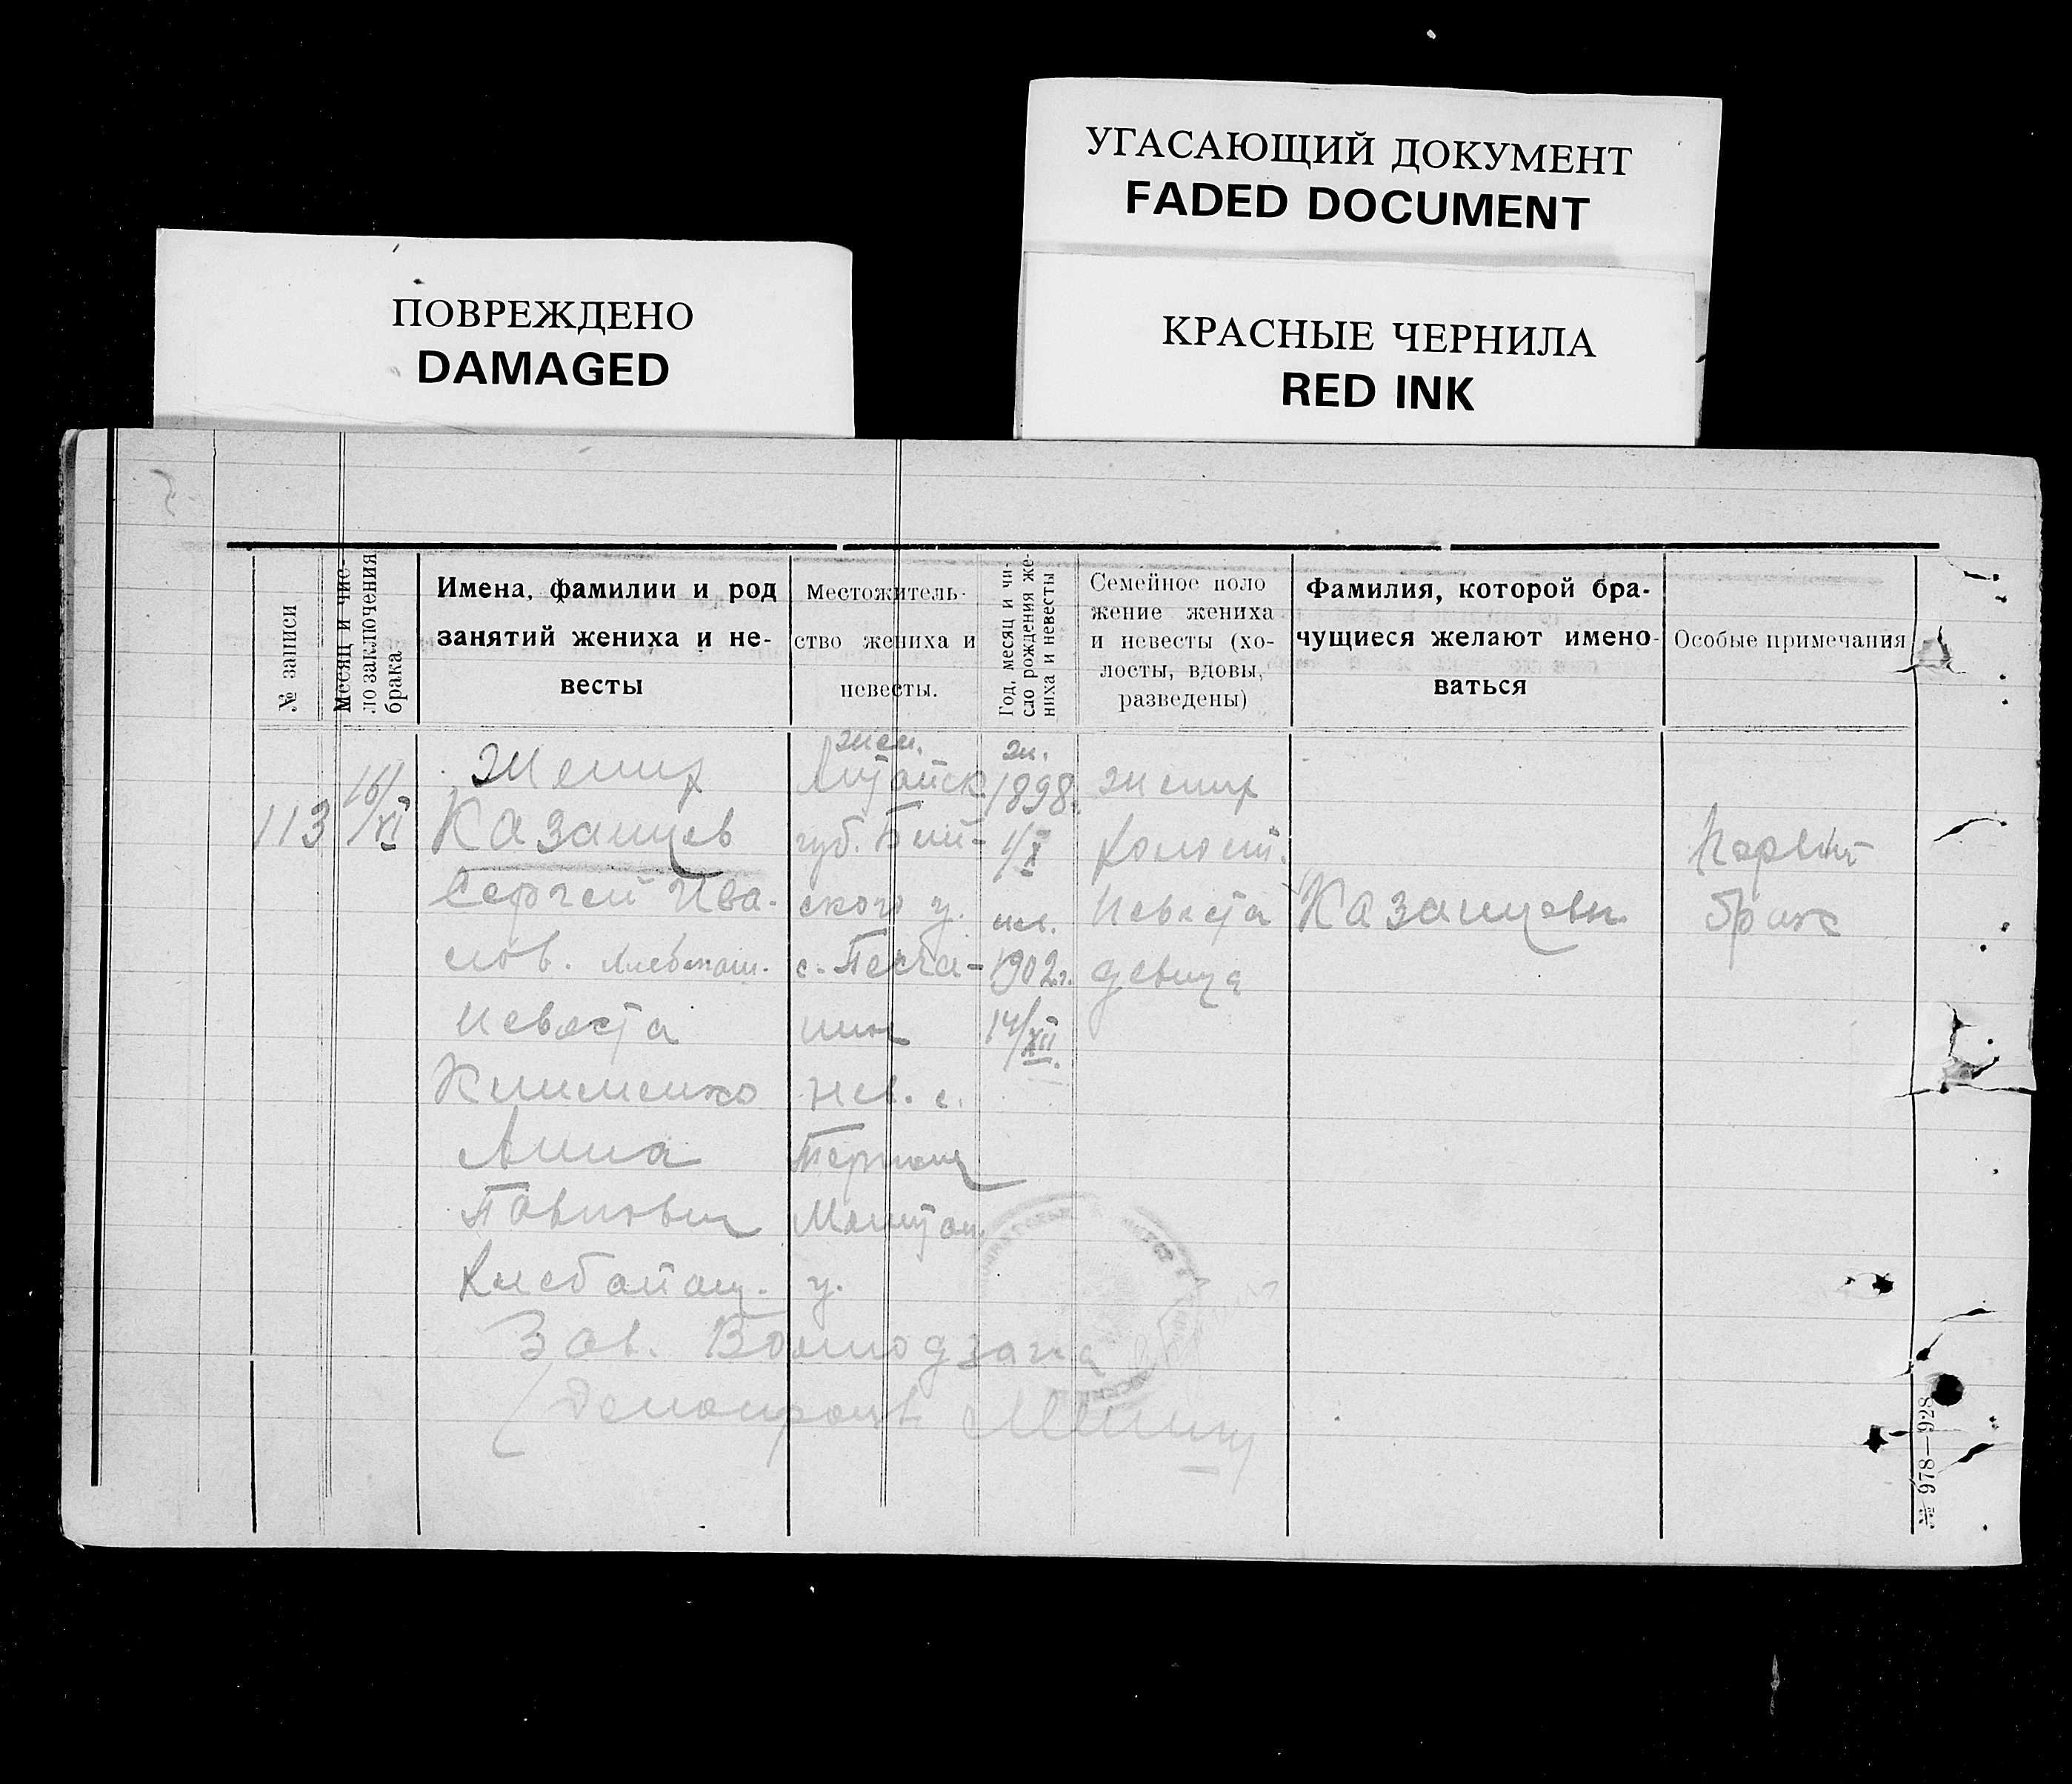 УГАСАЮЩИЙ ДОКУМЕНТ
FADED DOCUMENT
КРАСНЫЕ ЧЕРНИЛА
RED INK
ПОВРЕЖДЕНО
DAMAGED
№ записи
Месяц и чис-
ло заключения
брака
Имена, фамилии и род
занятий жениха и не-
весты
Местожитель-
ство жениха и
невесты.
Год, месяц и чи-
сло рождения же-
ниха и невесты
Семейное поло
жение жениха
и невесты (хо-
лосты, вдовы,
разведены)
Фамилия, которой бра-
чущиеся желают имено-
ваться
Особые примечания
113
16/XI
Жених
Казанцев
Сергей Ива-
нов. Хлебопаш.
Невеста
Клименко
Анна
Павловна
Хлебопаш.
жен.
Алтайск.
губ. Бий-
ского у.
с. Песча-
нин
нев. с.
у.
ж.
1898г.
1/X
нев.
1902г.
14/XII.
жених
холост.
Невеста
девица
Казанцевы
Первый
брак
Зав. Волподзага
№ 978—928